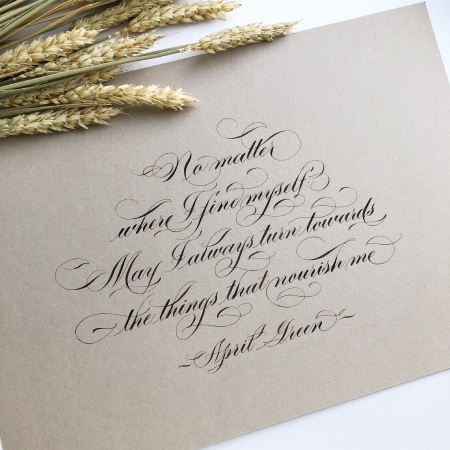 No matter
where I find myself
May I always turn towards
the things that nourish me
-April Green-